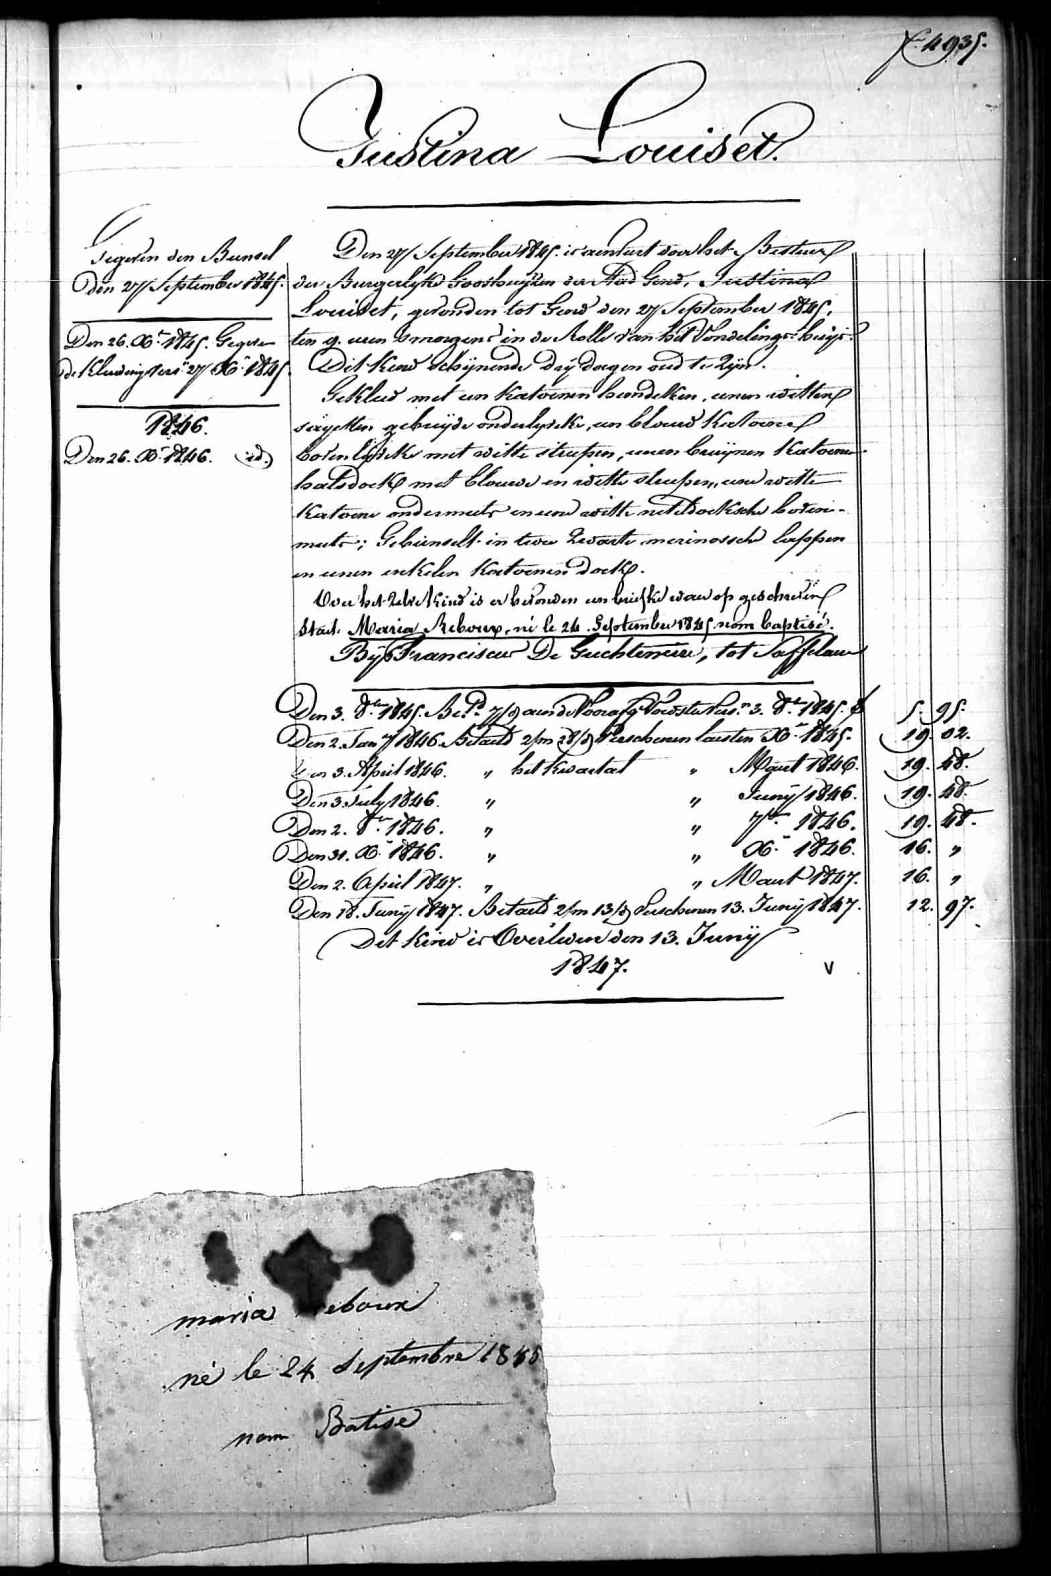 f. 4935.
Justina Louiset.
Gegeven den Bunsel
Den 27 September 1845.
Den 26. Xbr 1845. Gegeven
de Kleedingstters 27 Xbr 1845
1846.
Den 26. Xbr 1846. (id.)
Den 27 September 1845. is aenveert door het Bestuer
der Burgerlyke Godshuyzen der Stad Gend, Justina
Louiset, gevonden tot Gend den 27 September 1845,
ten 9. uren smorgens in de Rolle van het Vondelings-huys.
Dit Kind schynende dry dagen oud te zyn.
Gekleed met een Katoenen hemdeken, eenen witten
gebreyde onderlyfke, een blauw Katoene
bovenlyfske met witte streepen, eenen bruynen Katoene
halsdoek met blauwe en witte streepen, eene witte
Katoene ondermuts en eene witte neteldoeksche boven-
muts; Gebunselt in twee zwarte merinossche lappen
en eenen enkelen Katoenen doek.
Voor het zelve Kind is er bevonden een briefke waer op geschreven
staet. Maria Reboux, né le 24 September 1845 nom baptisé.
By Franciscus De Guchteneire, tot Saffelaere
Den 3. 8br 1845. Betd 7/d aen de Voorzorg Voedster Vers. 3. 8br 1845. f 5. 95.
Den 2. Jany 1846. Betaeld 2/m 28/d Verschenen laesten Xbr 1845. 19. 02.
Den 3. April 1846. „ het kwartael „ Maert 1846. 19. 48.
Den 3. July 1846. „ „ Juny 1846. 19. 48.
Den 2. 8br 1846. „ „ 7br 1846. 19. 48.
Den 31. Xbr 1846. „ „ Xbr 1846. 16. „
Den 2. April 1847. „ „ Maert 1847. 16. „
Den 18. Juny 1847. Betaeld 2/m 13/d Verschenen 13. Juny 1847. 12. 97.
Dit Kind is Overleden den 13. Juny
1847. v
maria reboux
né le 24 septembre 1845
nom Batisé